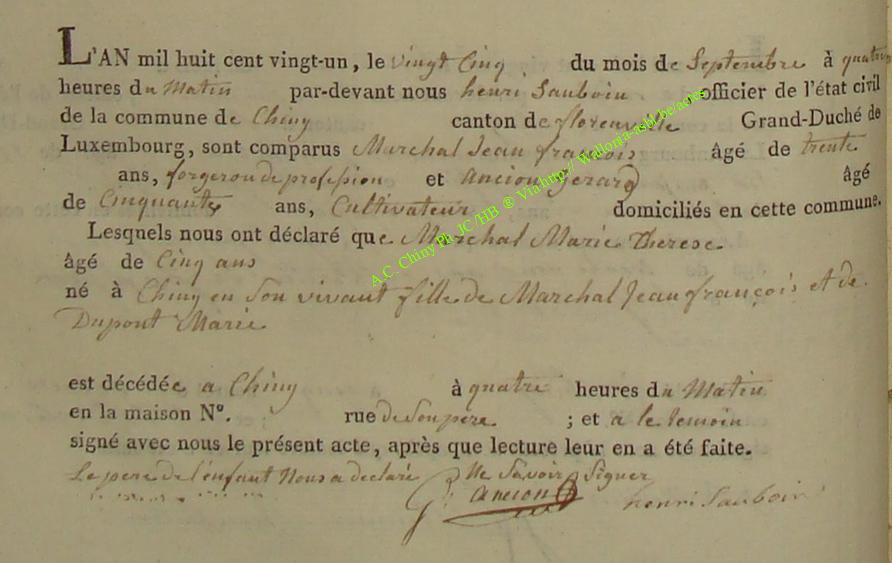 L'AN mil huit cent vingt-un, le vingt Cinq du mois de Septembre à quatre
heures du Matin par-devant nous henri Sauboin officier de l'état civil
de la commune de Chiny canton de florenville Grand-Duché de
Luxembourg, sont comparus Marchal Jean françois âgé de trente
ans, forgeron de profession et ancion gerard âgé
de Cinquante ans, Cultivateur domiciliés en cette commune.
Lesquels nous ont déclaré que Marchal Marie Therese
âgé de Cinq ans
né à Chiny en Son vivant fille de Marchal Jean françois et de
Dupont Marie
est décédée a Chiny à quatre heures du Matin
en la maison N°. rue de Son pere ; et a le temoin
signé avec nous le présent acte, après que lecture leur en a été faite.
Le pere de l'enfant Nous a declaré Ne Savoir Signer
G: ancion henri Sauboin
A.C. Chiny Ph. JC HB ® Via http:// Wallonia-asbl.be/actes